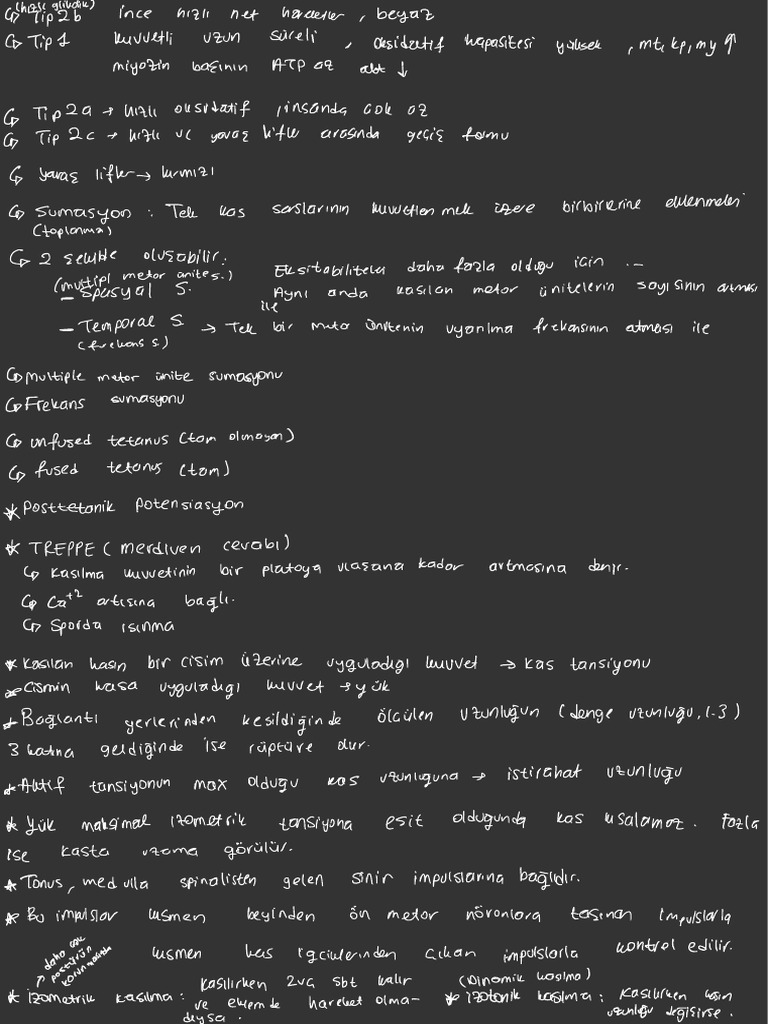 (hızlı glikolitik)
Tip 2b ince hızlı net hareketler, beyaz
Tip 1 kuvvetli uzun süreli, oksidatif kapasitesi yüksek, mt, kp, my ↑
miyozin başının ATP az akt ↓
Tip 2a → hızlı oksidatif, insanda çok az
Tip 2c → hızlı ve yavaş lifler arasında geçiş formu
yavaş lifler → kırmızı
Sumasyon : Tek kas sarsılarının kuvvetlenmek üzere birbirlerine eklenmeleri
(toplanma)
2 şekilde oluşabilir:
(multipl motor ünite s.) Eksitabiliteleri daha fazla olduğu için .-
- Spasyal S. Aynı anda kasılan motor ünitelerin sayısının artması
ile
- Temporal S → Tek bir motor ünitenin uyarılma frekansının artması ile
(frekans s)
multiple motor ünite sumasyonu
Frekans sumasyonu
unfused tetanus (tam olmayan)
fused tetanus (tam)
* Posttetanik Potensiasyon
* TREPPE (merdiven cevabı)
Kasılma kuvvetinin bir platoya ulaşana kadar artmasına denir.
Ca+2 artışına bağlı.
Sporda ısınma
* Kasılan kasın bir cisim üzerine uyguladığı kuvvet → kas tansiyonu
* Cismin kasa uyguladığı kuvvet → yük
* Bağlantı yerlerinden kesildiğinde ölçülen uzunluğun (denge uzunluğu, 1.3)
3 katına geldiğinde ise rüptüre olur.
* Aktif tansiyonun max olduğu kas uzunluğuna → istirahat uzunluğu
* Yük maksimal izometrik tansiyona eşit olduğunda kas kısalamaz. Fazla
ise kasta uzama görülür.
* Tonus, medulla spinalisten gelen sinir impulslarına bağlıdır.
* Bu impulslar kısmen beyinden ön motor nöronlara taşınan impulslarla
kısmen kas iğciklerinden çıkan impulslarla kontrol edilir.
daha çok
postürün
korunmasında
* izometrik kasılma: kasılırken 2va sbt kalır
ve eklemde hareket olma-
dıysa.
(Dinamik kasılma)
* izotonik kasılma: Kasılırken kasın
uzunluğu değişirse.